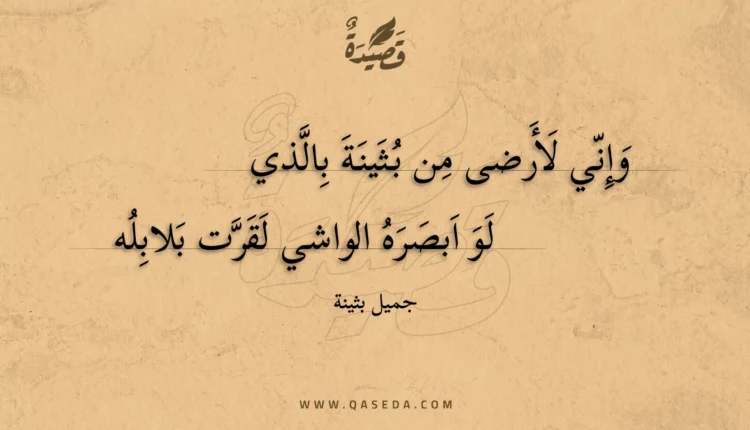 قَصِيدَةٌ
وَإِنّي لَأَرضى مِن بُثَينَةَ بِالَّذي
لَوَ اَبصَرَهُ الواشي لَقَرَّت بَلابِلُه
جميل بثينة
WWW.QASEDA.COM